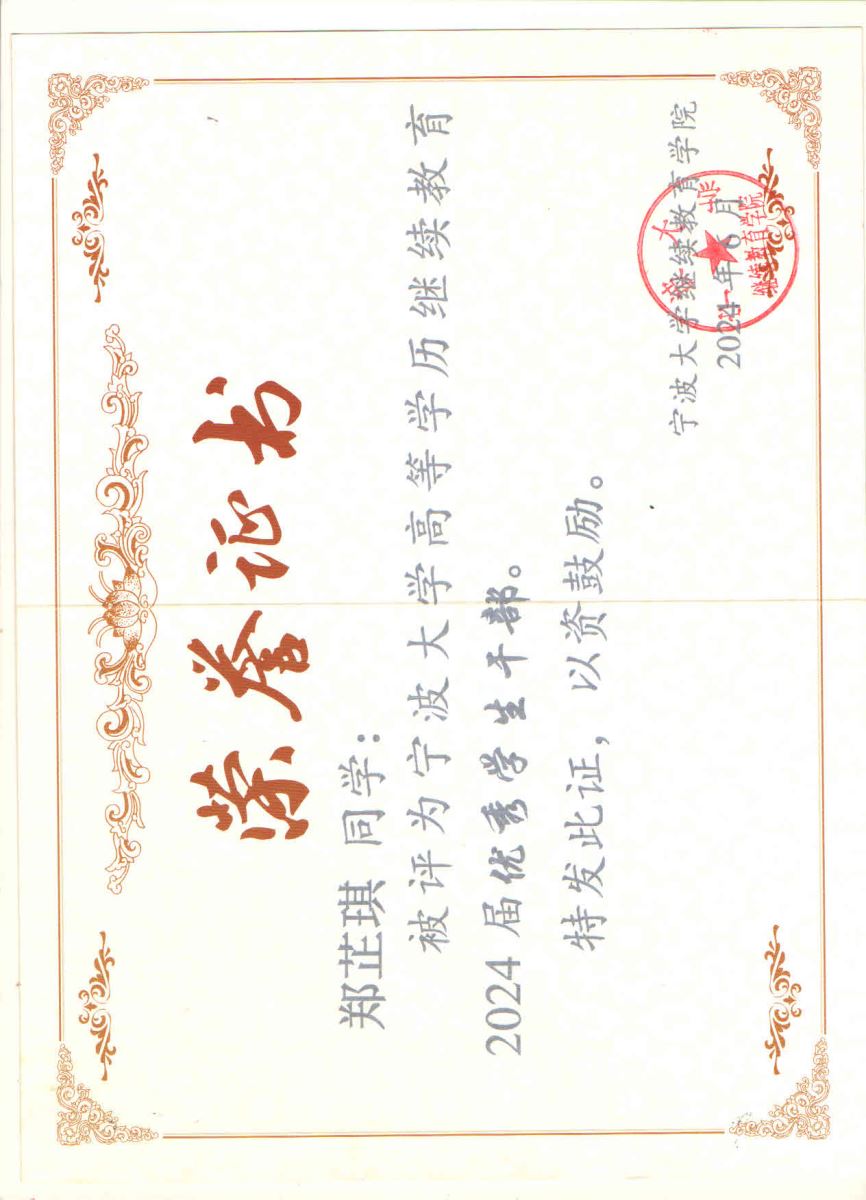 荣誉证书
郑芷琪 同学：
被评为宁波大学高等学历继续教育
2024 届优秀学生干部。
特发此证，以资鼓励。
宁波大学继续教育学院
2024 年 6 月
宁波大学
继续教育学院